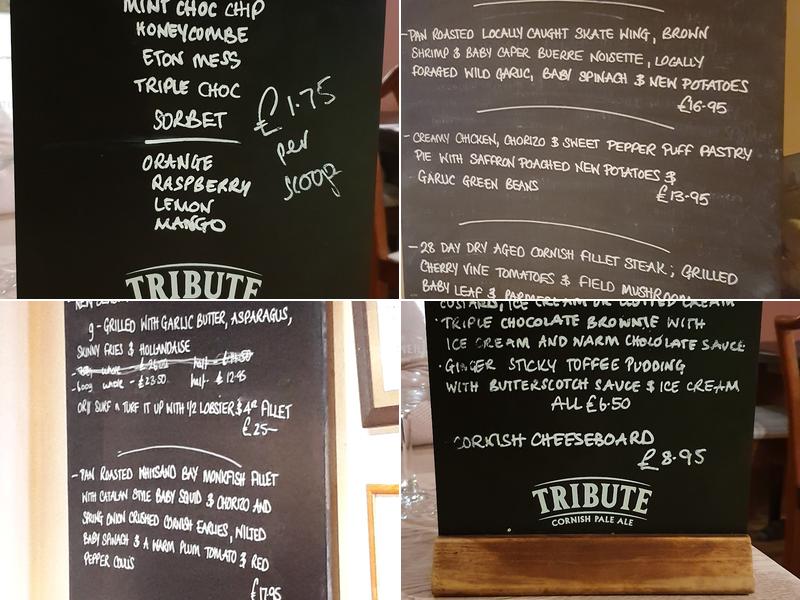 MINT CHOC CHIP
HONEYCOMBE
ETON MESS
TRIPLE CHOC
SORBET
£1.75
per
scoop
ORANGE
RASPBERRY
LEMON
MANGO
TRIBUTE
- PAN ROASTED LOCALLY CAUGHT SKATE WING, BROWN
SHRIMP & BABY CAPER BUERRE NOISETTE, LOCALLY
FORAGED WILD GARLIC, BABY SPINACH & NEW POTATOES
£16.95
- CREAMY CHICKEN, CHORIZO & SWEET PEPPER PUFF PASTRY
PIE WITH SAFFRON POACHED NEW POTATOES &
GARLIC GREEN BEANS
£13.95
- 28 DAY DRY AGED CORNISH FILLET STEAK; GRILLED
CHERRY VINE TOMATOES & FIELD MUSHROOM
BABY LEAF &
g - GRILLED WITH GARLIC BUTTER, ASPARAGUS,
SKINNY FRIES & HOLLANDAISE
- 600g whole - £23.50 half - £12.95
OR!! SURF N TURF IT UP WITH 1/2 LOBSTER & 4oz FILLET
£25-
- PAN ROASTED WHITSAND BAY MONKFISH FILLET
WITH CATALAN STYLE BABY SQUID & CHORIZO AND
SPRING ONION CRUSHED CORNISH EARLIES, WILTED
BABY SPINACH & A WARM PLUM TOMATO & RED
PEPPER COULIS
£17.95
CUSTARD, ICE CREAM OR CLOTTED CREAM
· TRIPLE CHOCOLATE BROWNIE WITH
ICE CREAM AND WARM CHOCOLATE SAUCE
· GINGER STICKY TOFFEE PUDDING
WITH BUTTERSCOTCH SAUCE & ICE CREAM
ALL £6.50
CORNISH CHEESEBOARD
£8.95
TRIBUTE
CORNISH PALE ALE